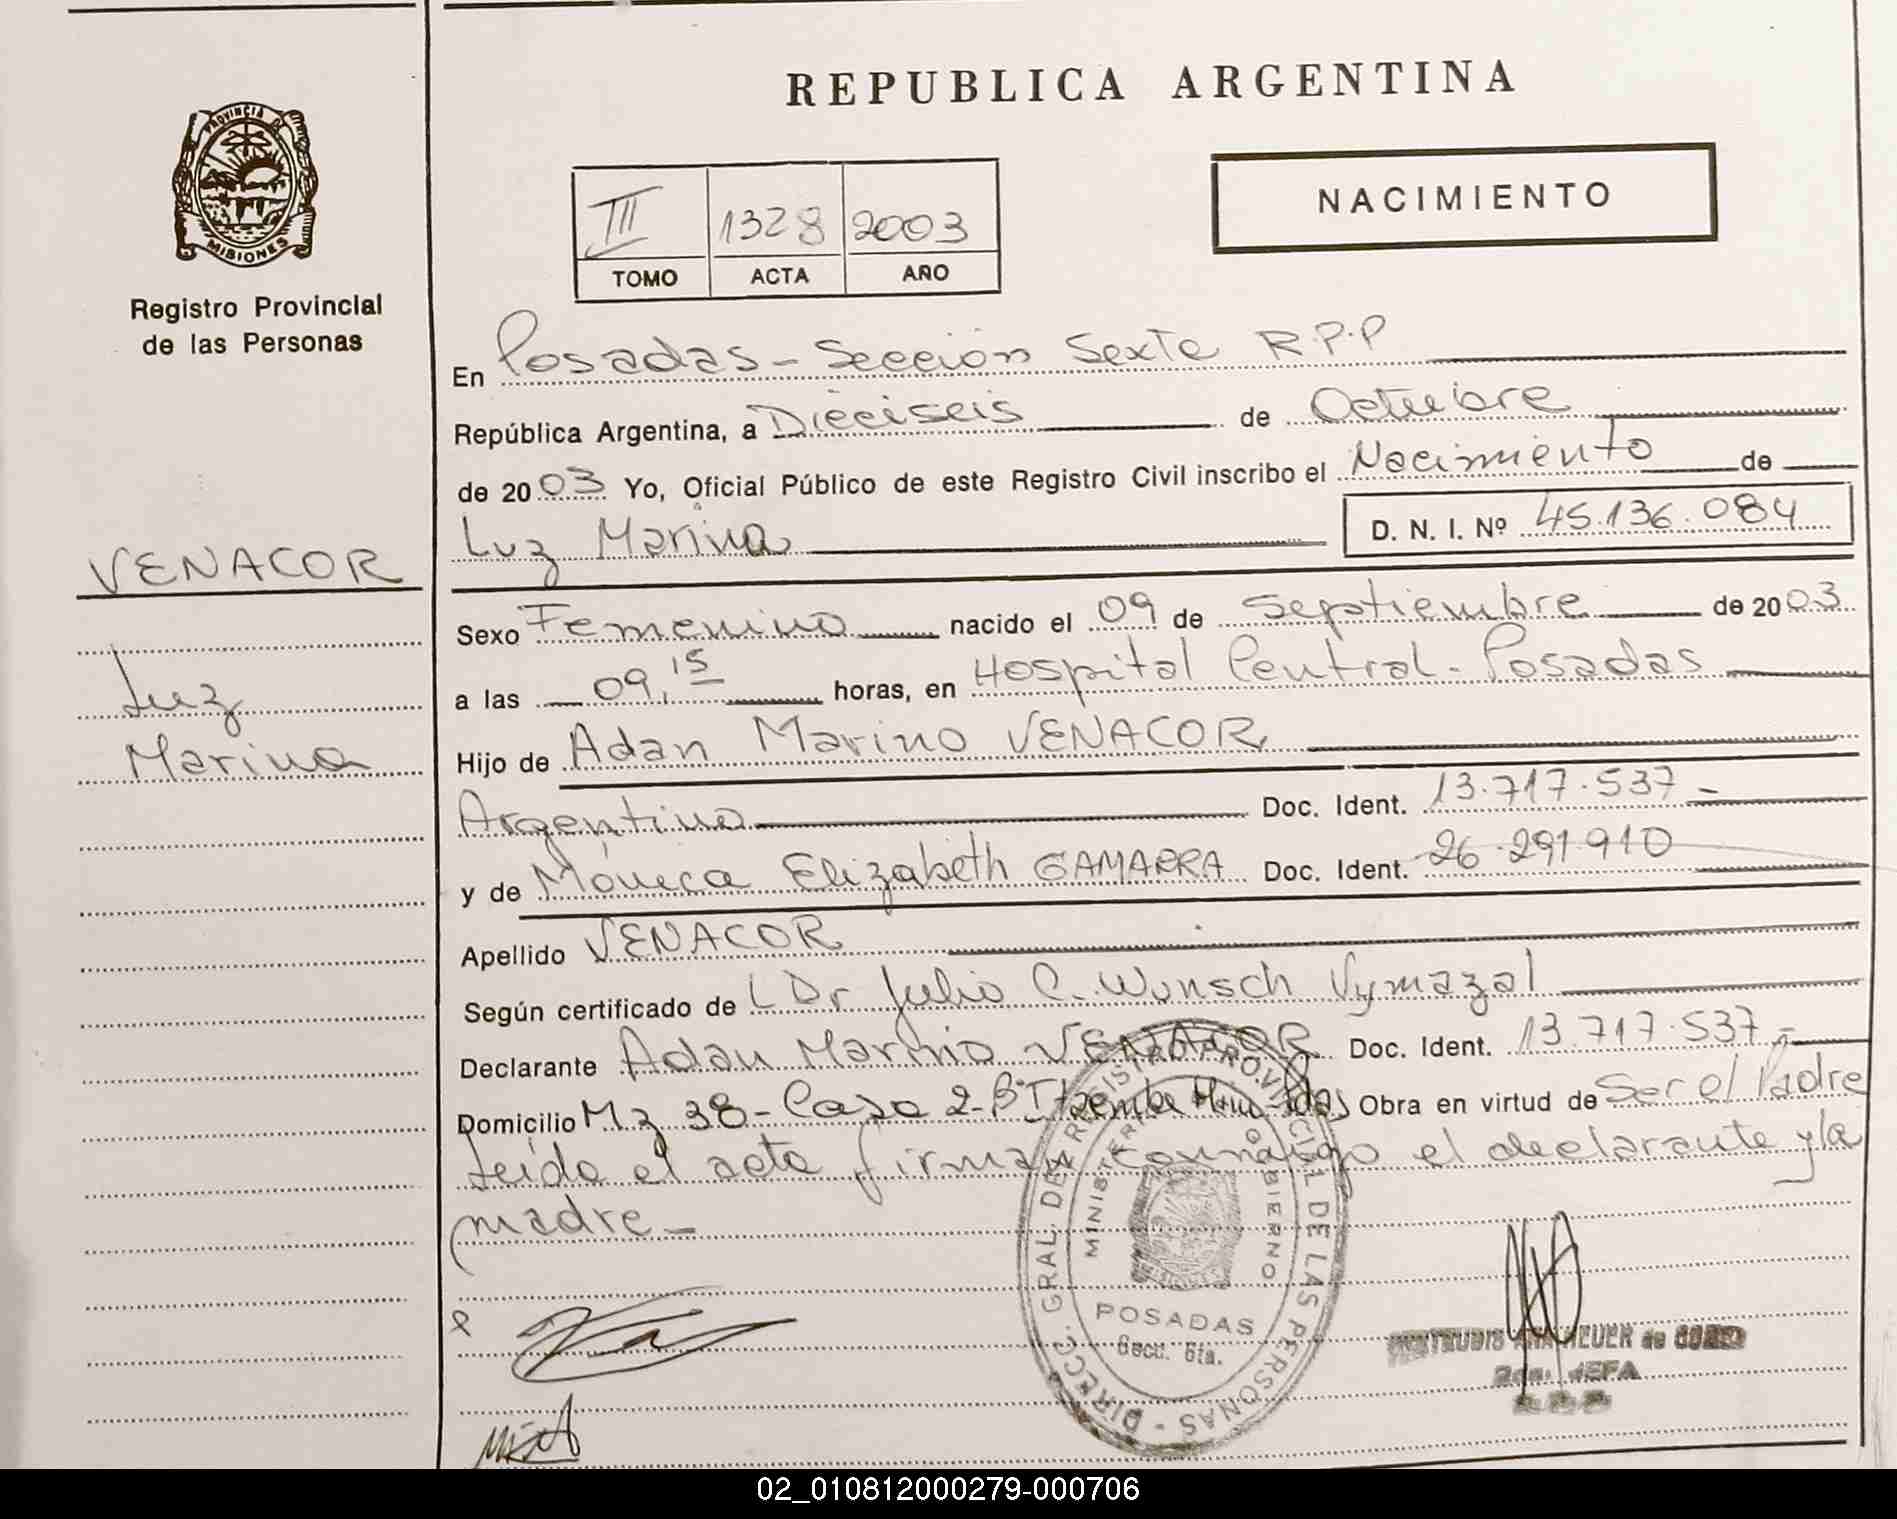 REPUBLICA ARGENTINA
PROVINCIA DE
MISIONES
Registro Provincial
de las Personas
NACIMIENTO
III 1328 2003
TOMO ACTA AÑO
En Posadas - Sección Sexta R.P.P
República Argentina, a Dieciseis de Octubre
de 2003 Yo, Oficial Público de este Registro Civil inscribo el Nacimiento de
Luz Marina D. N. I. Nº 45.136.084
VENACOR
Luz
Marina
Sexo Femenino nacido el 09 de Septiembre de 2003
a las 09,15 horas, en Hospital Central - Posadas
Hijo de Adan Marino VENACOR
Argentino Doc. Ident. 13.717.537 -
y de Mónica Elizabeth GAMARRA Doc. Ident. 26.291.910
Apellido VENACOR
Según certificado de Dr Julio C. Wunsch Vymazal
Declarante Adan Marino VENACOR Doc. Ident. 13.717.537 -
Domicilio Mz 38 - Casa 2 - Bº Itaembe Obra en virtud de Ser el Padre
Leida el acta firman conmigo el declarante y la
madre -
DIRECC. GRAL. DEL REGISTRO PROVINCIAL DE LAS PERSONAS -
MINISTERIO GOBIERNO
POSADAS
Secc. 6ta.
JEFA
02_010812000279-000706